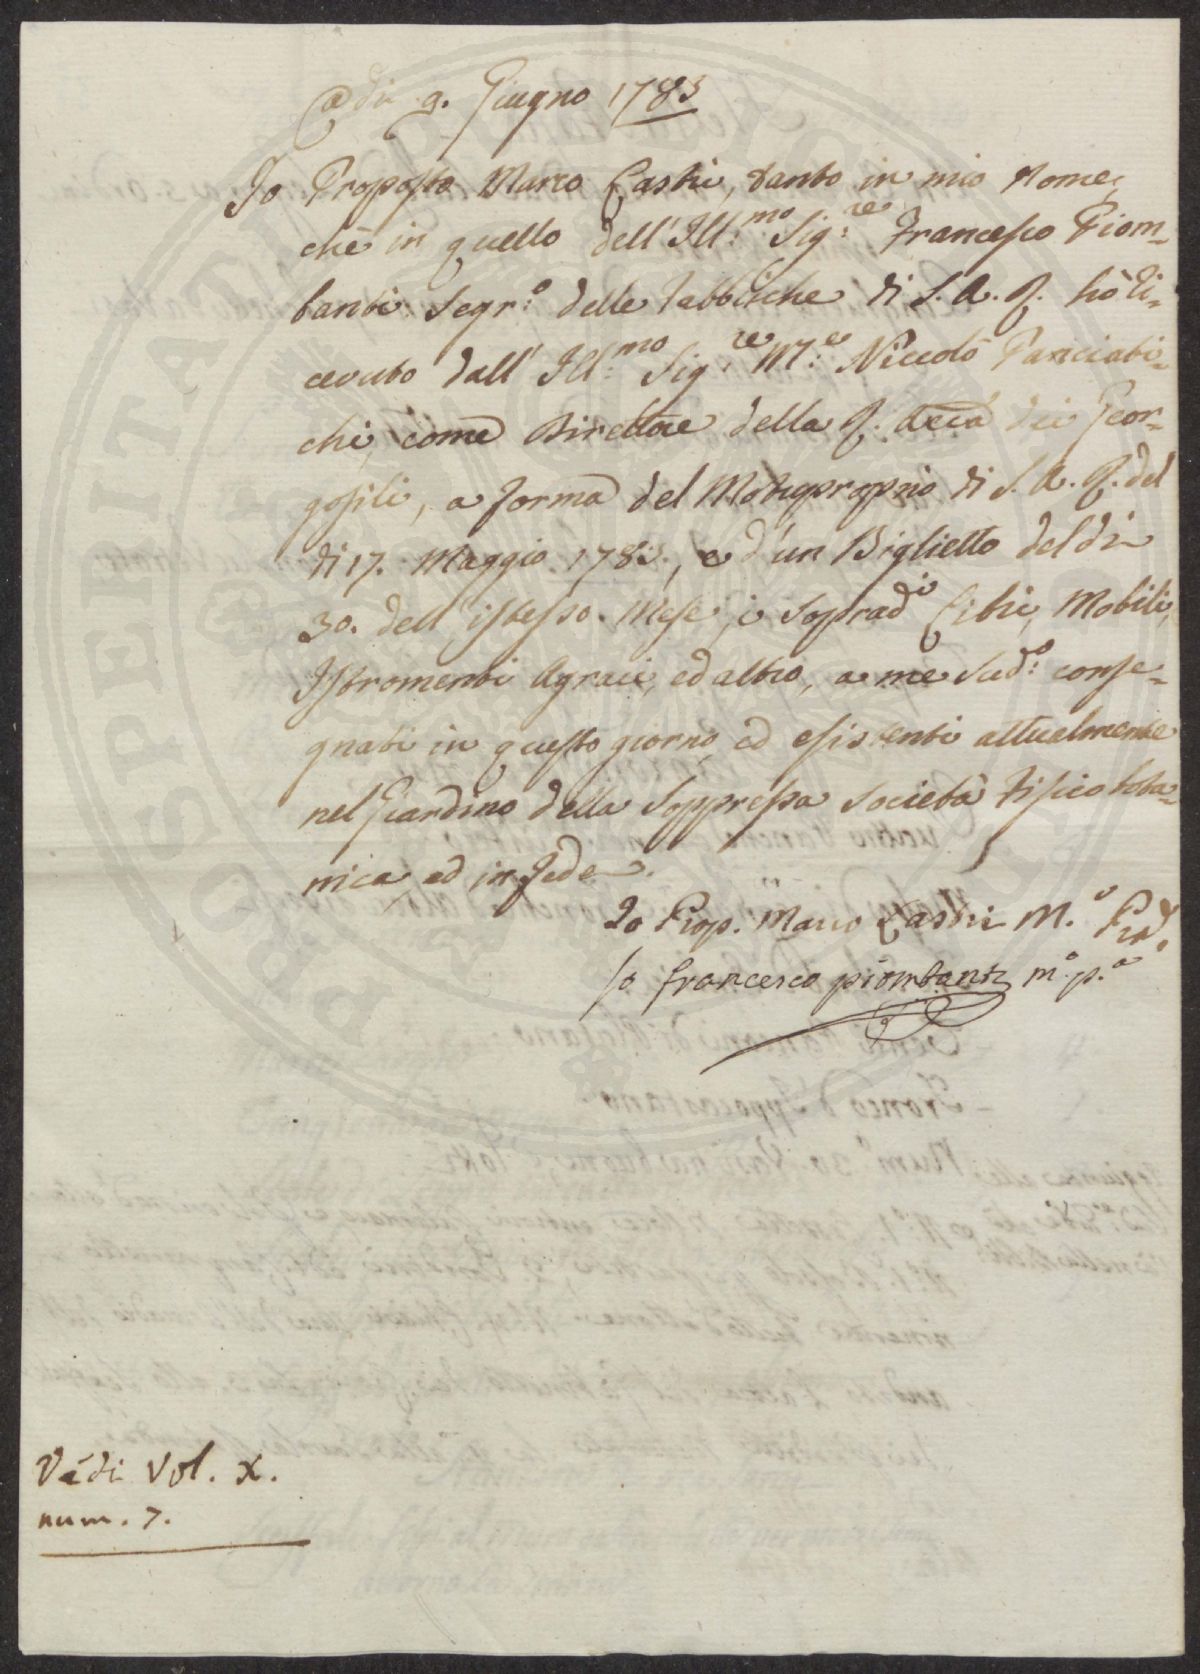 Adì 9. Giugno 1783
Io Proposto Marco Lastri, tanto in mio Nome,
che in quello dell' Ill:mo Sig:re Francesco Piom-
banti Segr:o delle Fabbriche di S. A. R. hò ri-
cevuto dall' Ill:mo Sig:re M:e Niccolò Panciati-
chi, come Direttore della R. Accà dei Geor-
gofili, a forma del Motuproprio di S. A. R. del
dì 17. Maggio 1783., e d'un Biglietto del dì
30. dell' istesso Mese, i sopradi Libri, Mobili,
Istromenti Agrari, ed altro, a me sud:o conse-
gnati in questo giorno, ed esistenti attualmente
nel Giardino della Soppressa Società Fisico bota-
nica, ed in fede.
Io Prop. Marco Lastri M.o
Io francesco piombanti m:o p:a
Vedi Vol. X.
num. 7.
PROSPERITATI PUBLICAE